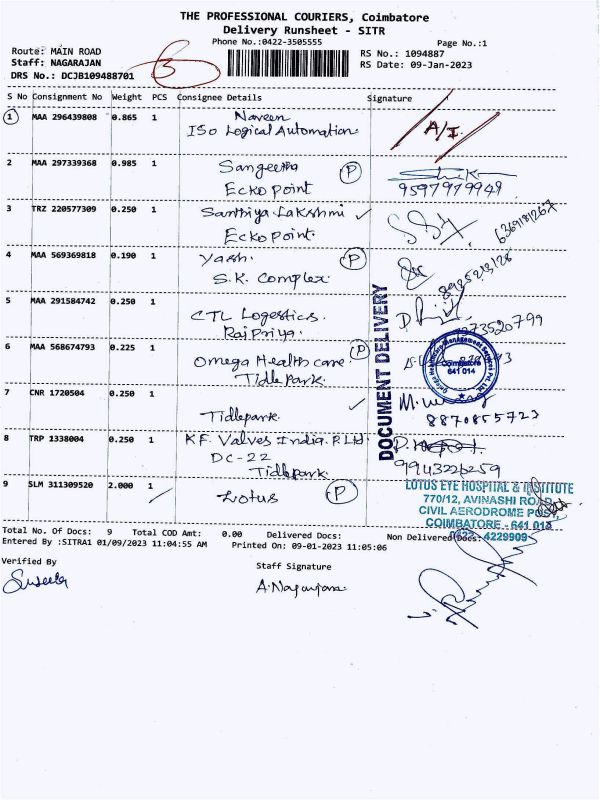 THE PROFESSIONAL COURIERS, Coimbatore
Delivery Runsheet - SITR
Phone No.:0422-3505555
Page No.:1
Route: MAIN ROAD
RS No.: 1094887
Staff: NAGARAJAN
RS Date: 09-Jan-2023
DRS No.: DCJB109488701
S No Consignment No Weight PCS Consignee Details Signature
1 MAA 296439808 0.865 1 Naveen
ISo Logical Automation. A/I.
2 MAA 297339368 0.985 1 Sangeetha P
Ecko Point 9597979949
3 TRZ 220577309 0.250 1 Santhiya Lakshmi
Ecko Point. 6369181267
4 MAA 569369818 0.190 1 Yash. P
S.K. Complex.
5 MAA 291584742 0.250 1 CTL Logestics.
Raj Priya.
6 MAA 568674793 0.225 1 Omega Health care P
Tidle Park.
Coimbatore
641 014
7 CNR 1720504 0.250 1
Tidlepark. 8870855723
8 TRP 1338004 0.250 1 K.F. Valves India. P. Ltd.
DC-22
Tidlepark. 9943226259
DOCUMENT DELIVERY
9 SLM 311309520 2.000 1 Lotus P
LOTUS EYE HOSPITAL & INSTITUTE
770/12, AVINASHI ROAD
CIVIL AERODROME POST,
COIMBATORE - 641 013
0422-4229909
Total No. Of Docs: 9 Total COD Amt: 0.00 Delivered Docs: Non Delivered Docs:
Entered By :SITRA1 01/09/2023 11:04:55 AM Printed On: 09-01-2023 11:05:06
Verified By
Staff Signature
A. Nagarajan